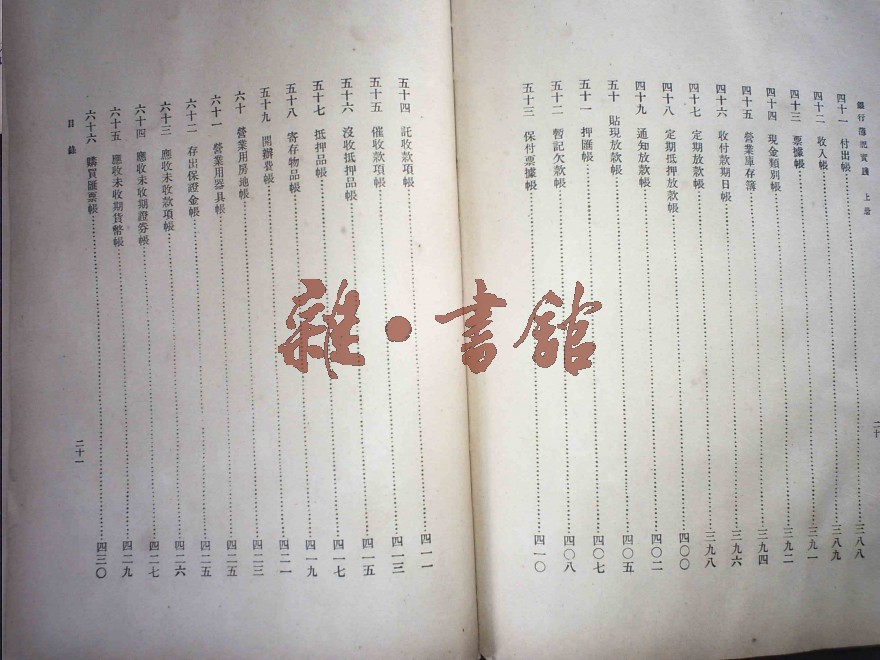 銀行簿記實踐 上册
四十一 付出帳……三八八
四十二 收入帳……三八九
四十三 票據帳……三九一
四十四 現金類別帳……三九二
四十五 營業庫存簿……三九四
四十六 收付款期日帳……三九六
四十七 定期放款帳……三九八
四十八 定期抵押放款帳……四〇〇
四十九 通知放款帳……四〇二
五十 貼現放款帳……四〇五
五十一 押匯帳……四〇七
五十二 暫記欠款帳……四〇八
五十三 保付票據帳……四一〇
二十
五十四 託收款項帳……四一一
五十五 催收款項帳……四一三
五十六 沒收抵押品帳……四一五
五十七 抵押品帳……四一七
五十八 寄存物品帳……四一九
五十九 開辦費帳……四二一
六十 營業用房地帳……四二三
六十一 營業用器具帳……四二五
六十二 存出保證金帳……四二五
六十三 應收未收款項帳……四二六
六十四 應收未收期證券帳……四二七
六十五 應收未收期貨幣帳……四二九
六十六 購買匯票帳……四三〇
目錄
二十一
雜·書館